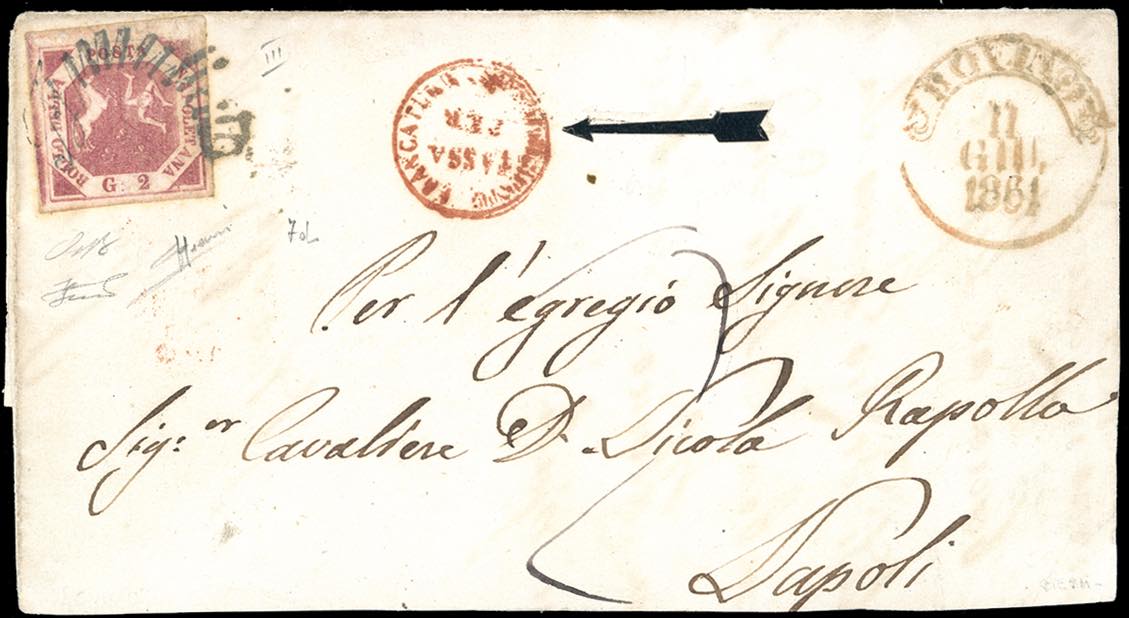 BOLLO DELLA POSTA NAPOLETANA
G. 2
III
FRANCATURA
PER
TASSA
11
GIU.
1861
7d
Per l'egregio Signore
Sig:er Cavaliere D. Nicola Rapolla
Napoli